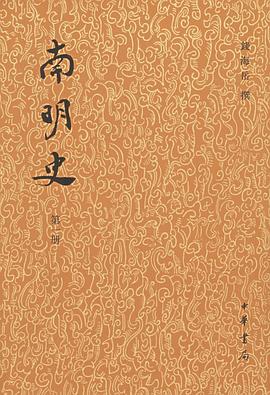 南明史
第一册
錢海岳 撰
中華書局